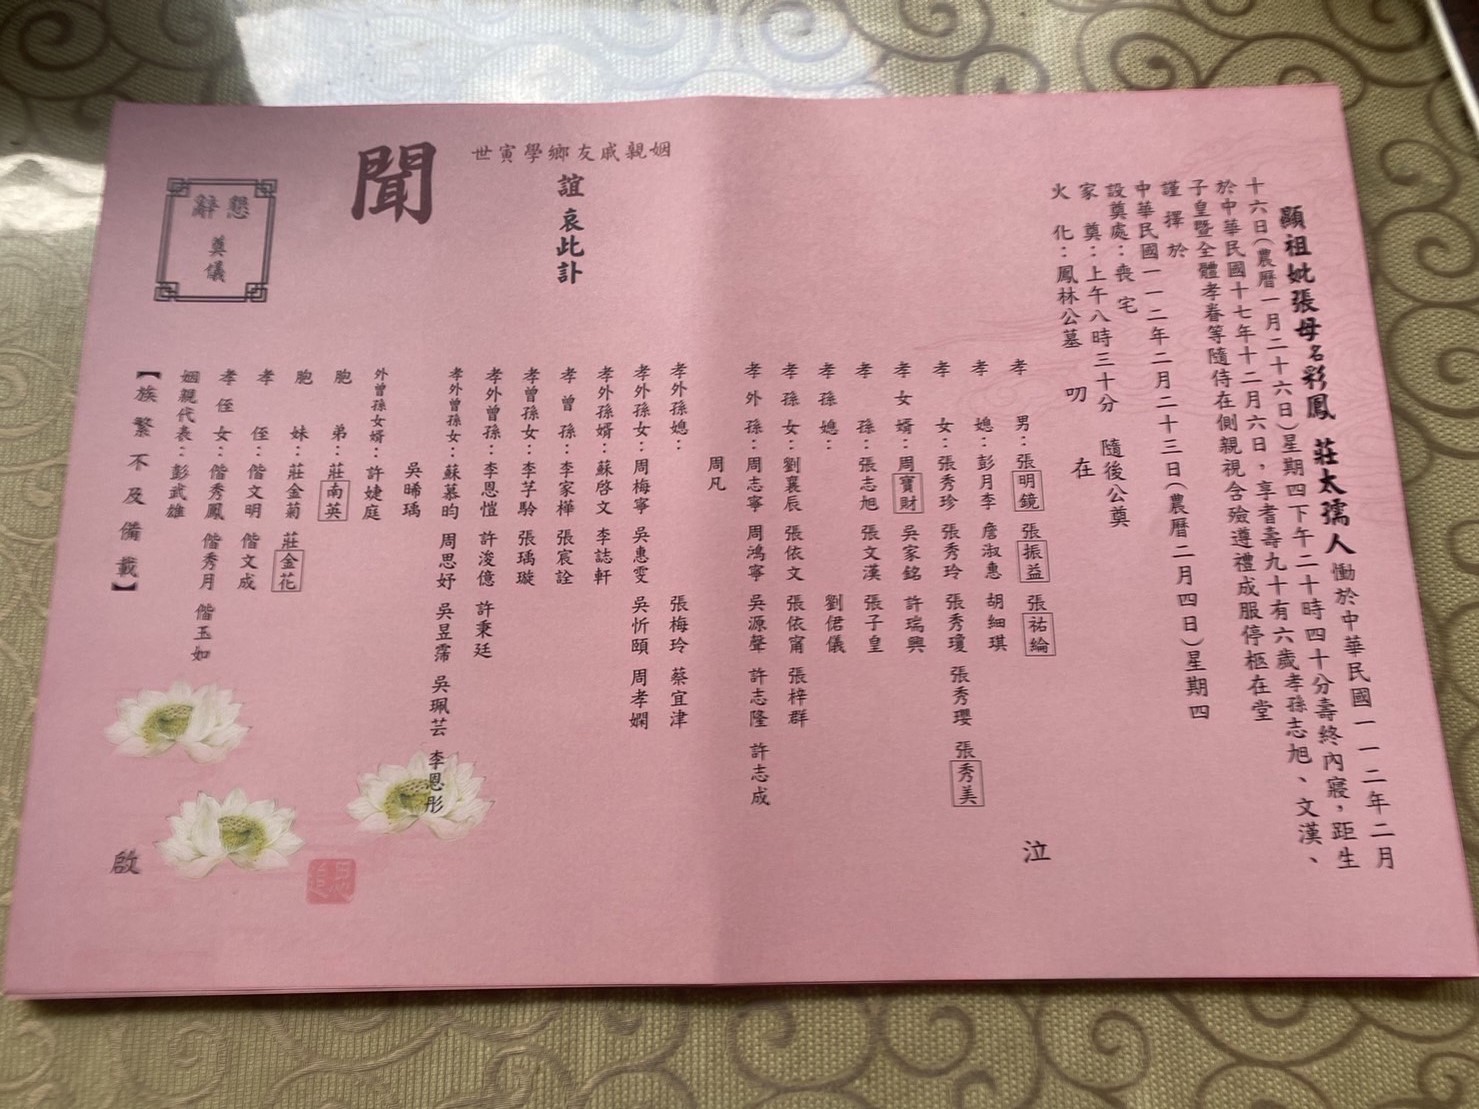 顯祖妣張母名彩鳳 莊太孺人慟於中華民國一一二年二月
十六日(農曆一月二十六日)星期四下午二十時四十分壽終內寢，距生
於中華民國十七年十二月六日，享耆壽九十有六歲孝孫志旭、文漢、
子皇暨全體孝眷等隨侍在側親視含殮遵禮成服停柩在堂
謹擇於
中華民國一一二年二月二十三日(農曆二月四日)星期四
設奠處：喪宅
家奠：上午八時三十分 隨後公奠
火化：鳳林公墓 叨在
孝男：張明鏡 張振益 張祐綸
孝媳：彭月李 詹淑惠 胡細琪
孝女：張秀珍 張秀玲 張秀瓊 張秀瓔 張秀美
孝女婿：周寶財 吳家銘 許瑞興
孝孫：張志旭 張文漢 張子皇
孝孫媳： 劉偌儀
孝孫女：劉襄辰 張依文 張依甯 張梓群
孝外孫：周志寧 周鴻寧 吳源聲 許志隆 許志成
周凡
孝外孫媳： 張梅玲 蔡宜津
孝外孫女：周梅寧 吳惠雯 吳忻頤 周孝嫻
孝外孫婿：蘇啓文 李誌軒
孝曾孫：李家樺 張宸詮
孝曾孫女：李芓聆 張瑀璇
孝外曾孫：李恩愷 許浚億 許秉廷
孝外曾孫女：蘇慕昀 周思妤 吳昱霈 吳珮芸 李恩彤
吳晞瑀
外曾孫女婿：許婕庭
胞弟：莊南英
胞妹：莊金菊 莊金花
孝侄：偕文明 偕文成
孝侄女：偕秀鳳 偕秀月 偕玉如
姻親代表：彭武雄
【族繁不及備載】
泣
啟
姻親戚友鄉學寅世
誼 哀此訃
聞
懇辭
奠儀